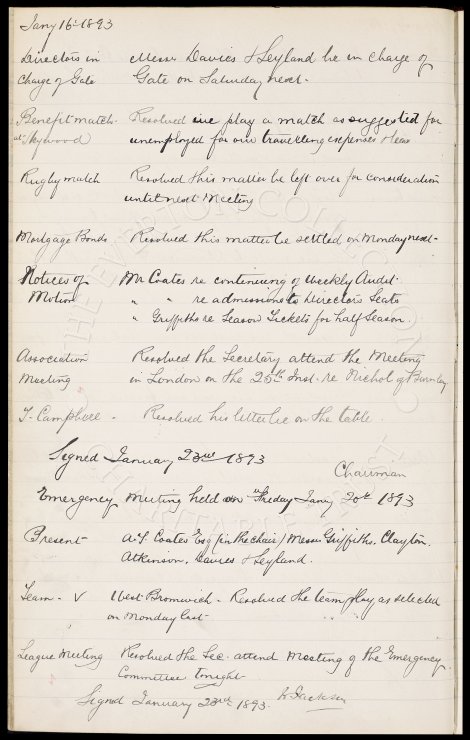 Jany 16th 1893
Directors in Messrs Davies & Leyland be in charge of
Charge of Gate Gate on Saturday next.
Benefit match Resolved we play a match as suggested for
at Heywood unemployed for our travelling expenses & teas
Rugby match Resolved this matter be left over for consideration
until next Meeting
Mortgage Bonds Resolved this matter be settled on Monday next.
Notices of Mr Coates re continuing of Weekly Audit.
Motion " " re admissions to Directors Seats
" Griffiths re Season Tickets for half Season.
Association Resolved the Secretary attend the Meeting
Meeting in London on the 25th Inst. re Nichol of Burnley
T. Resolved his letter lie on the table.
Signed January 23rd 1893
Chairman
Emergency Meeting held on Friday Jany 20th 1893
Present A.T. Coates Esq (in the chair) Messrs Griffiths, Clayton,
Atkinson, Davies & Leyland.
Team - V West Bromwich - Resolved the team play as selected
on Monday last
League Meeting Resolved the Sec. attend Meeting of the Emergency
Committee tonight
Signed January 23rd 1893. Jackson
THE EVERTON COLLECTION CHARITABLE TRUST